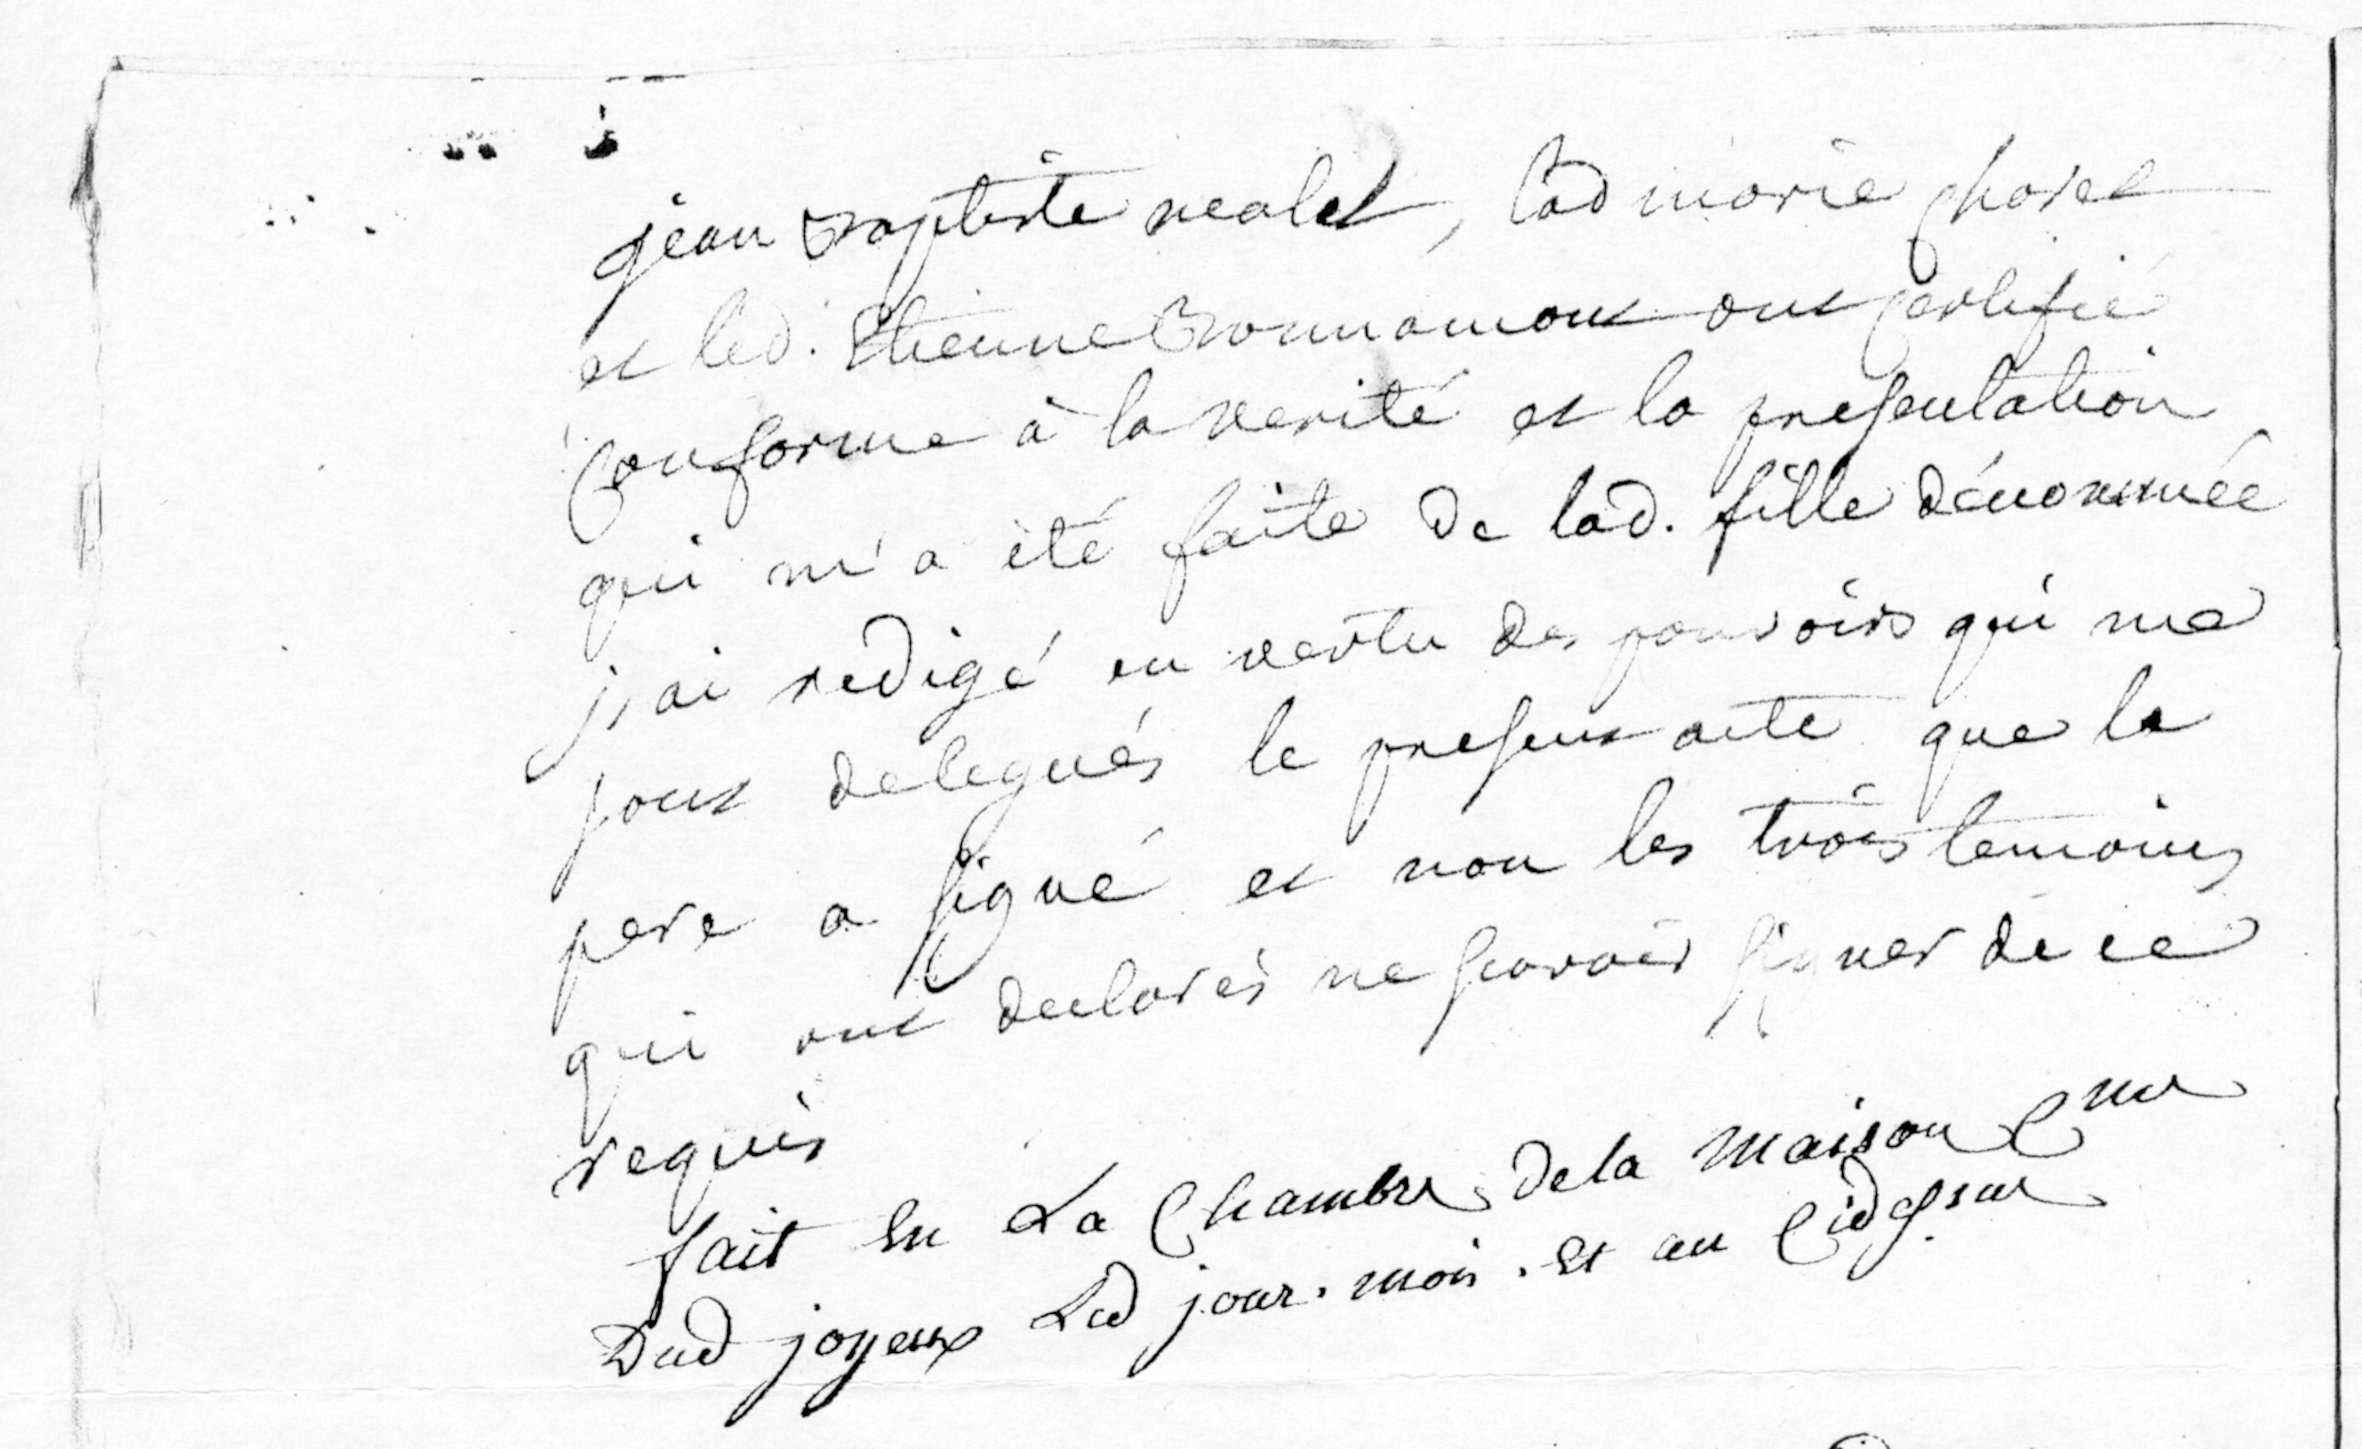 jean Baptiste vealet, lad marie choret
et led. Etienne Bonnamour ont certifié
conforme à la verité et la presentation
qui m'a été faite de lad. fille dénommée
j, ai redigé en vertu des pouvoirs qui me
sont delegués le present acte que le
pere a signé et non les trois temoins
qui ont declarés ne scavoir signer de ce
requis
fait En La Chambre dela maison Cne
Dud joyeux Led jour. mois. Et an Cidessus